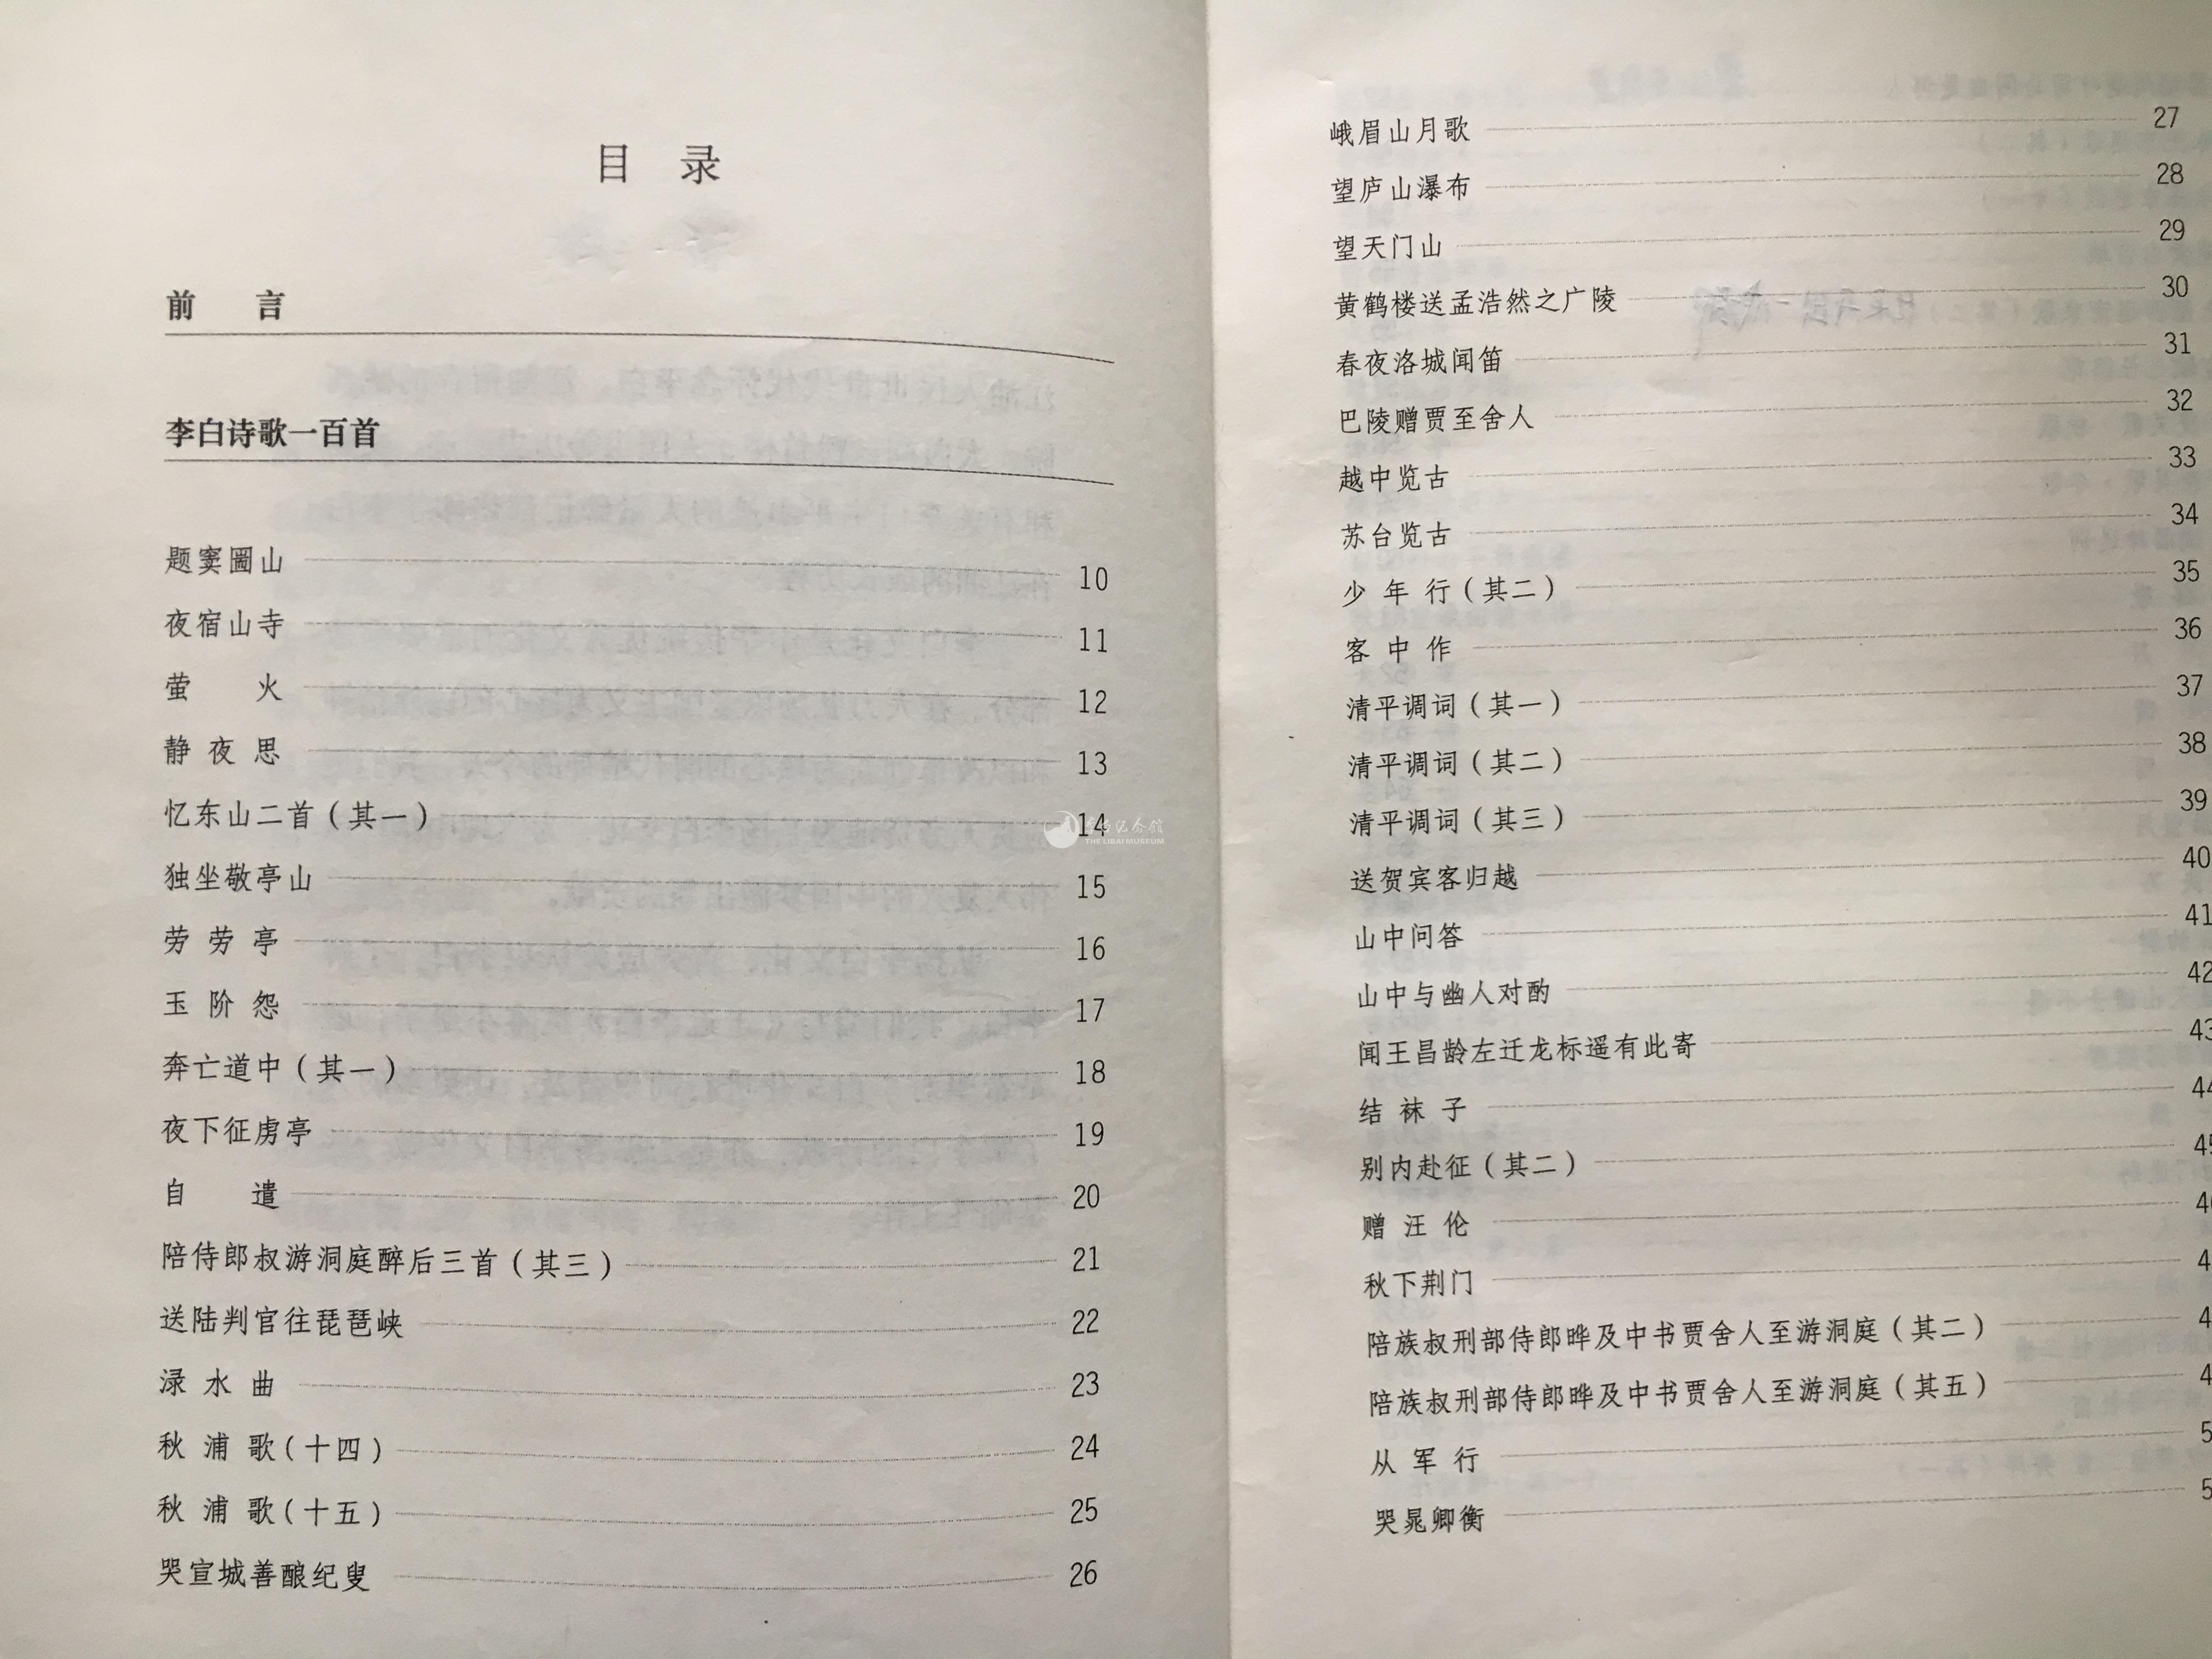 目 录
前 言
李白诗歌一百首
题窦圌山 10
夜宿山寺 11
萤 火 12
静 夜 思 13
忆东山二首（其一） 14
独坐敬亭山 15
劳 劳 亭 16
玉 阶 怨 17
奔亡道中（其一） 18
夜下征虏亭 19
自 遣 20
陪侍郎叔游洞庭醉后三首（其三） 21
送陆判官往琵琶峡 22
渌 水 曲 23
秋 浦 歌（十四） 24
秋 浦 歌（十五） 25
哭宣城善酿纪叟 26
峨眉山月歌 27
望庐山瀑布 28
望天门山 29
黄鹤楼送孟浩然之广陵 30
春夜洛城闻笛 31
巴陵赠贾至舍人 32
越中览古 33
苏台览古 34
少 年 行（其二） 35
客 中 作 36
清平调词（其一） 37
清平调词（其二） 38
清平调词（其三） 39
送贺宾客归越 40
山中问答 41
山中与幽人对酌 42
闻王昌龄左迁龙标遥有此寄 43
结 袜 子 44
别内赴征（其二） 45
赠 汪 伦 4
秋下荆门 4
陪族叔刑部侍郎晔及中书贾舍人至游洞庭（其二） 4
陪族叔刑部侍郎晔及中书贾舍人至游洞庭（其五） 4
从 军 行 5
哭晁卿衡 5
李白纪念馆
THE LIBAI MUSEUM